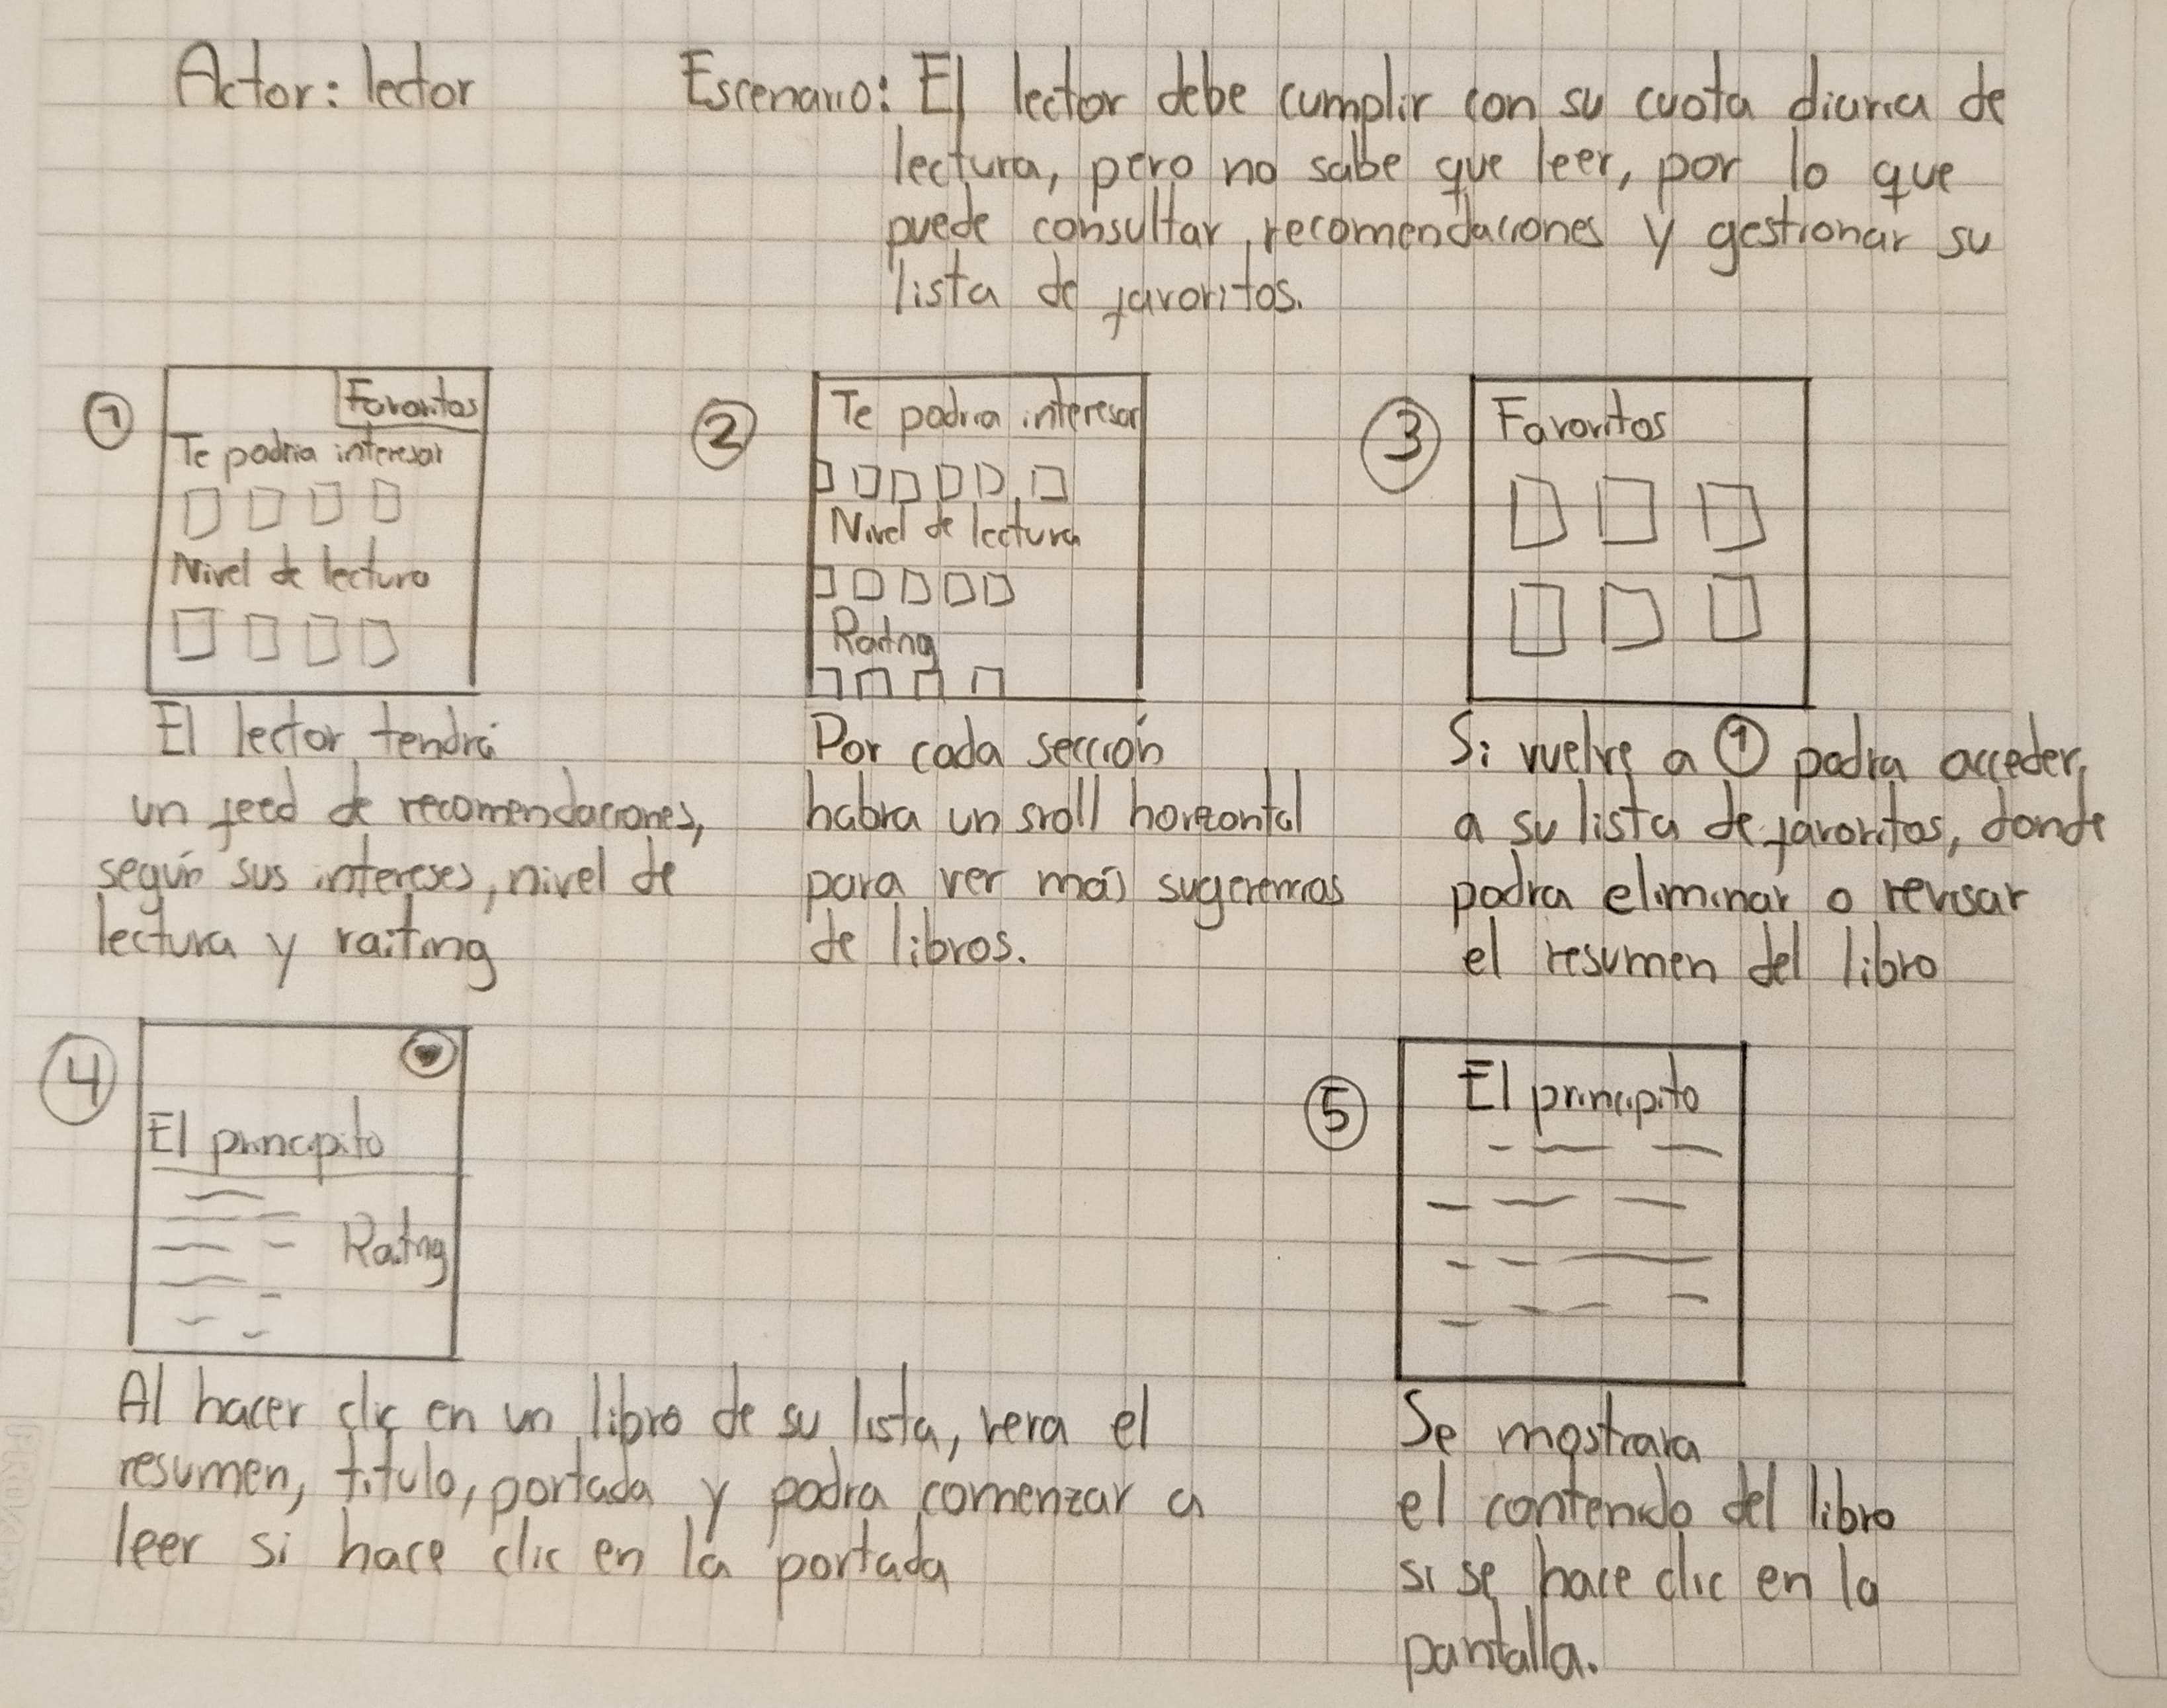 Actor: lector
Escenario: El lector debe cumplir con su cuota diaria de
lectura, pero no sabe que leer, por lo que
puede consultar recomendaciones y gestionar su
lista de favoritos.
1
Favoritos
Te podria interesar
Nivel de lectura
El lector tendrá
un feed de recomendaciones,
según sus intereses, nivel de
lectura y raiting
2
Te podria interesar
Nivel de lectura
Rating
Por cada sección
habra un sroll horizontal
para ver más sugerencias
de libros.
3
Favoritos
Si vuelve a 1 podra acceder
a su lista de favoritos, donde
podra eliminar o revisar
el resumen del libro
4
El principito
Rating
Al hacer clic en un libro de su lista, vera el
resumen, titulo, portada y podra comenzar a
leer si hace clic en la portada
5
El principito
Se mostrara
el contenido del libro
si se hace clic en la
pantalla.